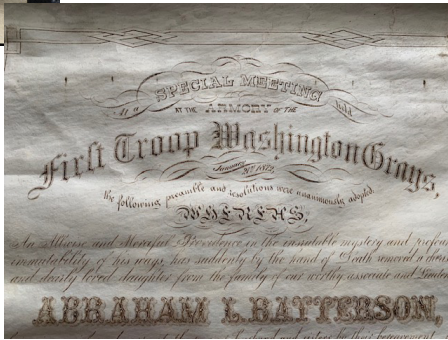 At a SPECIAL MEETING held
AT THE ARMORY OF THE
First Troop Washington Grays,
January 20th 1879,
the following preamble and resolutions were unanimously adopted.
WHEREAS,
An Allwise and Merciful Providence in the inscrutable mystery and profound
immutability of his ways, has suddenly by the hand of Death removed a
and dearly loved daughter from the family of our worthy associate and
ABRAHAM L. BATTERSON,